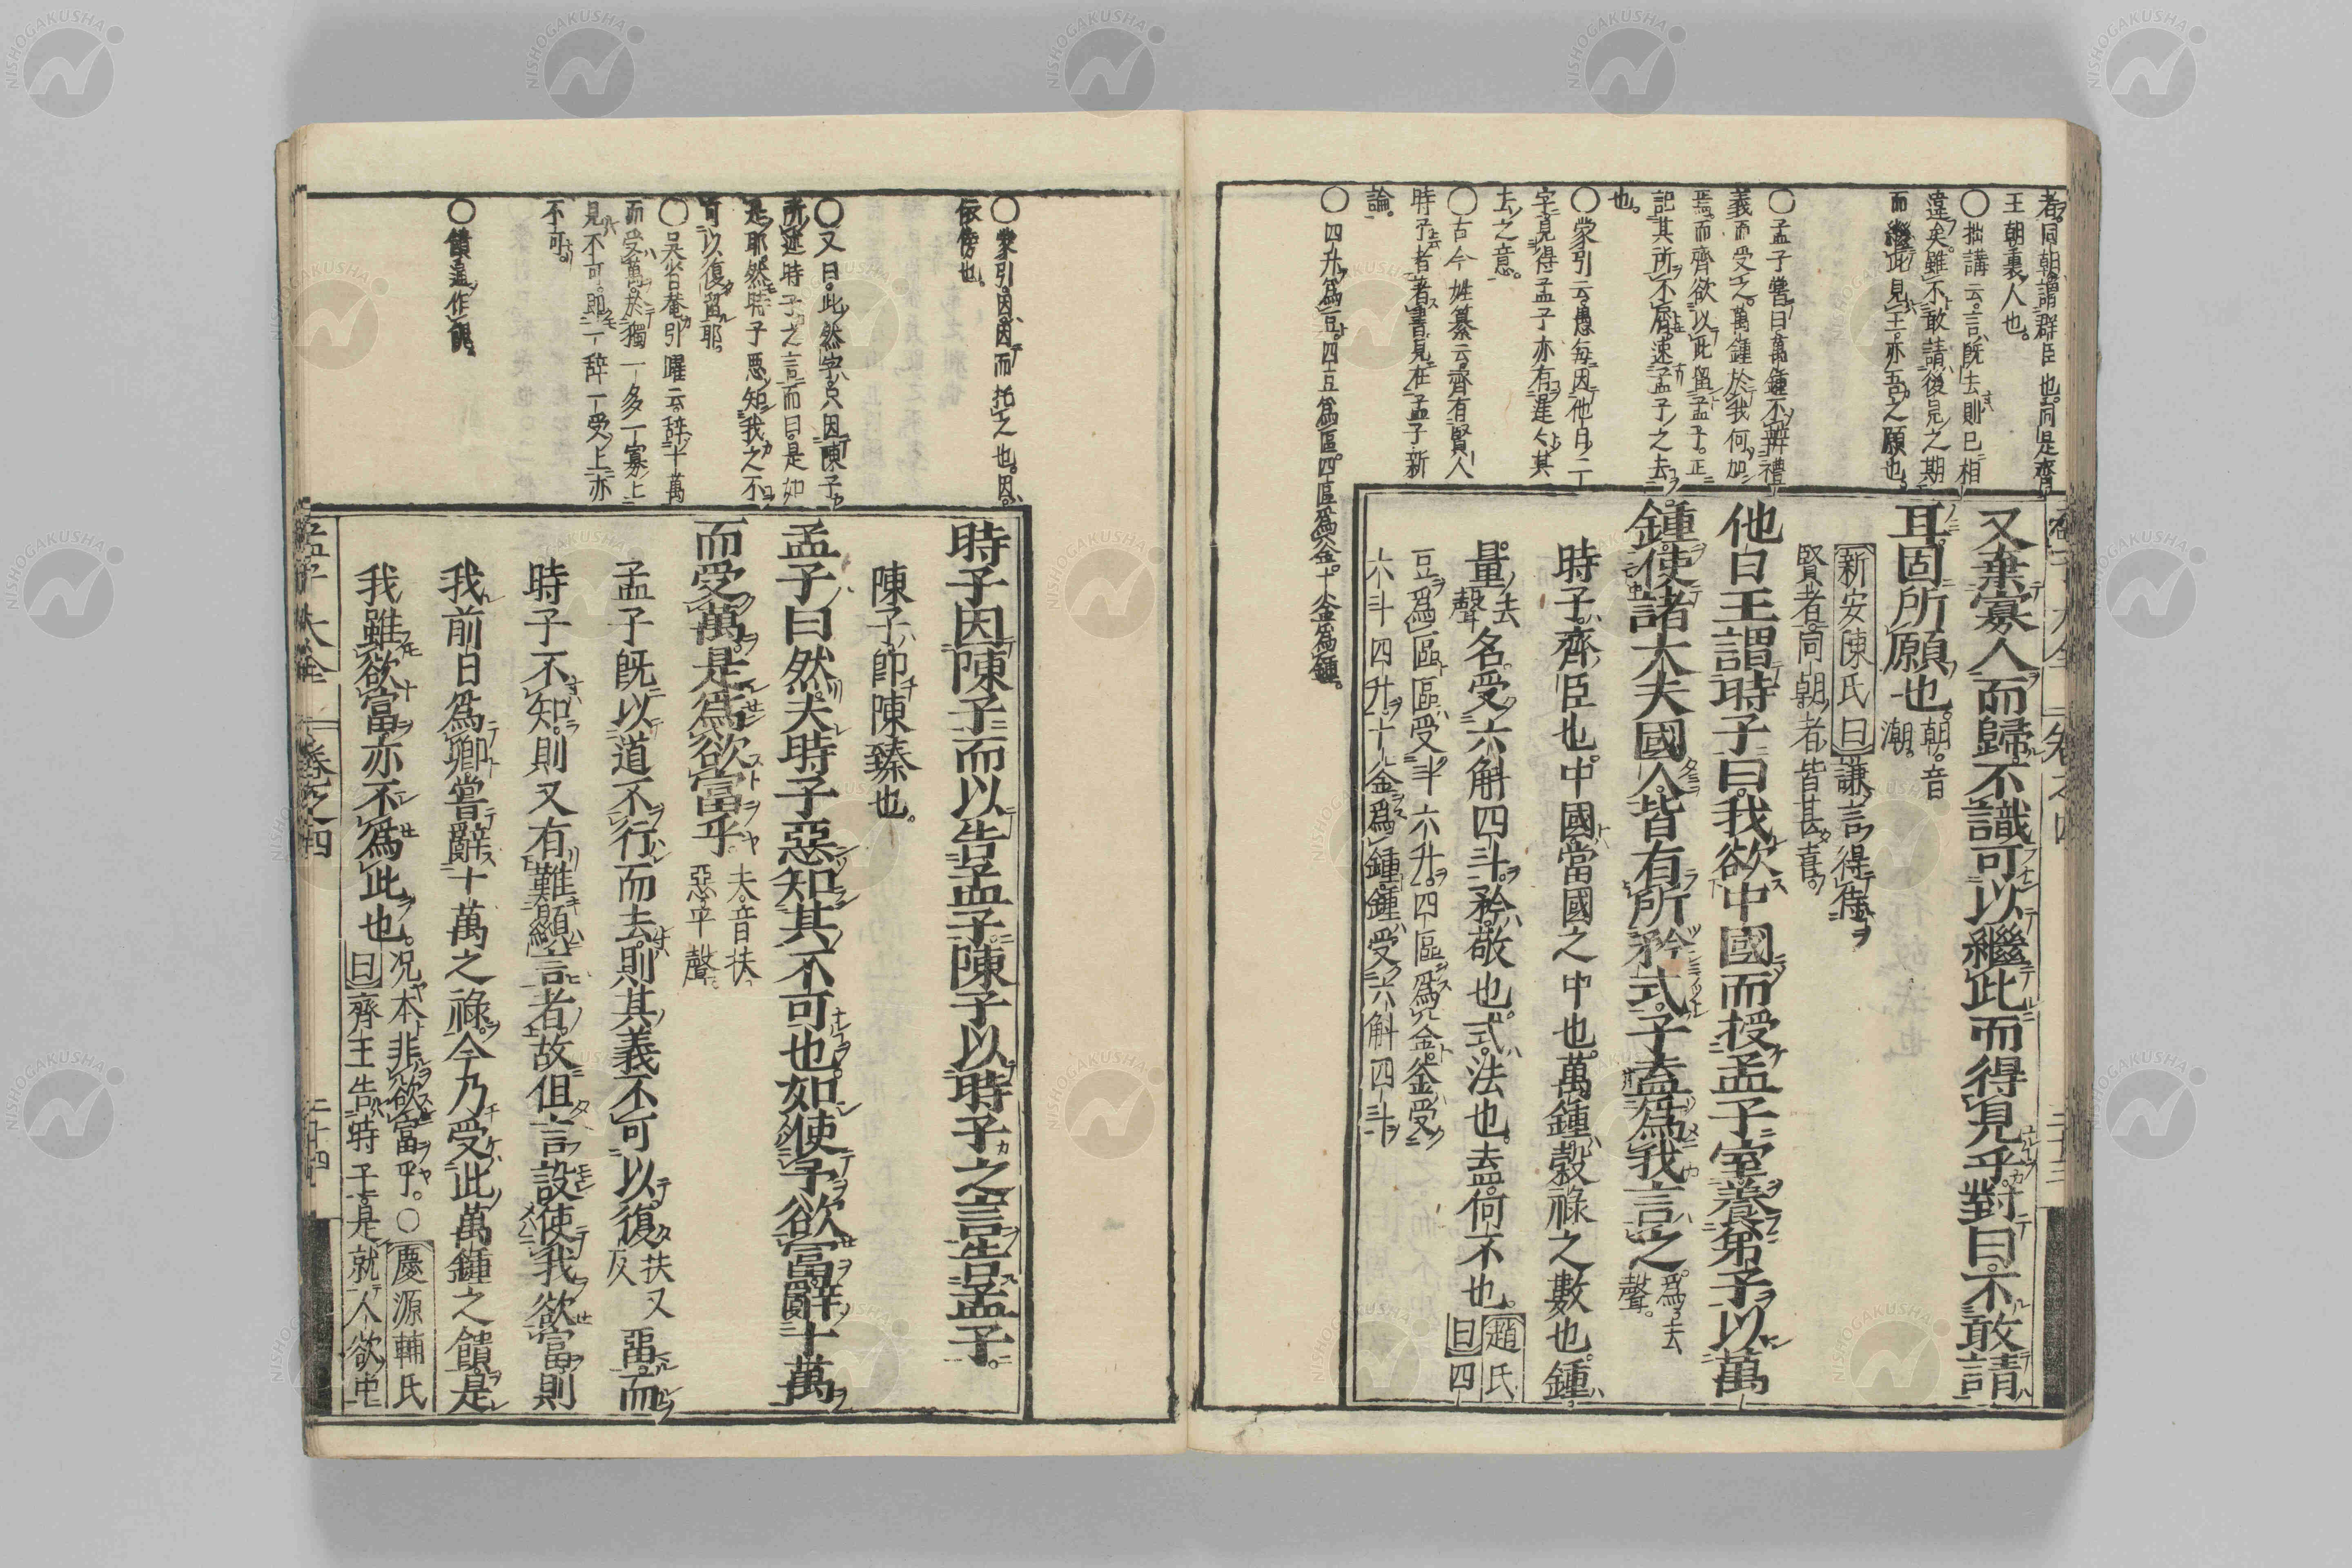 者同朝謂群臣也同是齊
王朝裏人也。
〇拙講云言既去則已相
違矣雖不敢請後見之期
而繼此見王亦吾之願也
〇孟子嘗曰萬鍾不辨禮
義而受之萬鍾於我何加
焉而齊欲以此留孟子正
記其所不屑速孟子之去
也。
〇蒙引云愚每因他日二
字見得孟子亦有遲〻其
去之意。
〇古今姓纂云齊有賢人
時子者著書見在孟子新
論。
〇四升爲豆四豆爲區四區爲釜十釜爲鍾。
又棄寡人而歸不識可以繼此而得見乎對曰不敢請
耳固所願也朝音潮。
新安陳氏曰謙言得侍
賢者同朝者皆甚喜
他日王謂時子曰我欲中國而授孟子室養弟子以萬
鍾使諸大夫國人皆有所矜式子盍爲我言之爲去聲。
時子齊臣也中國當國之中也萬鍾穀祿之數也鍾
量去聲名受六斛四斗矜敬也式法也盍何不也。趙氏曰四
豆爲區區受斗六升四區爲釜釜受
六斗四升十釜爲鍾鍾受六斛四斗
孟子大全 卷之四 二十三
〇蒙引因因而托之也因
依傍也。
〇又曰此然字只因陳子
所述時子之言而曰是如
是耶然時子惡知我之不
可以復留耶。
〇吳省菴引曜云辞十萬
而受萬於獨一多一寡上
見不可即一辞一受上亦
不可。
〇饋遥作餽
時子因陳子而以告孟子陳子以時子之言告孟子。
陳子即陳臻也。
孟子曰然夫時子惡知其不可也如使予欲富辭十萬
而受萬是爲欲富乎夫音扶惡平聲。
孟子既以道不行而去則其義不可以復扶又反畱而
時子不知則又有難顯言者故但言設使我欲富則
我前日爲卿嘗辭十萬之祿今乃受此萬鍾之饋是
我雖欲富亦不爲此也。况本非欲富乎。〇慶源輔氏
曰齊王告時子是就人欲中
孟子大全 卷之四 二十四